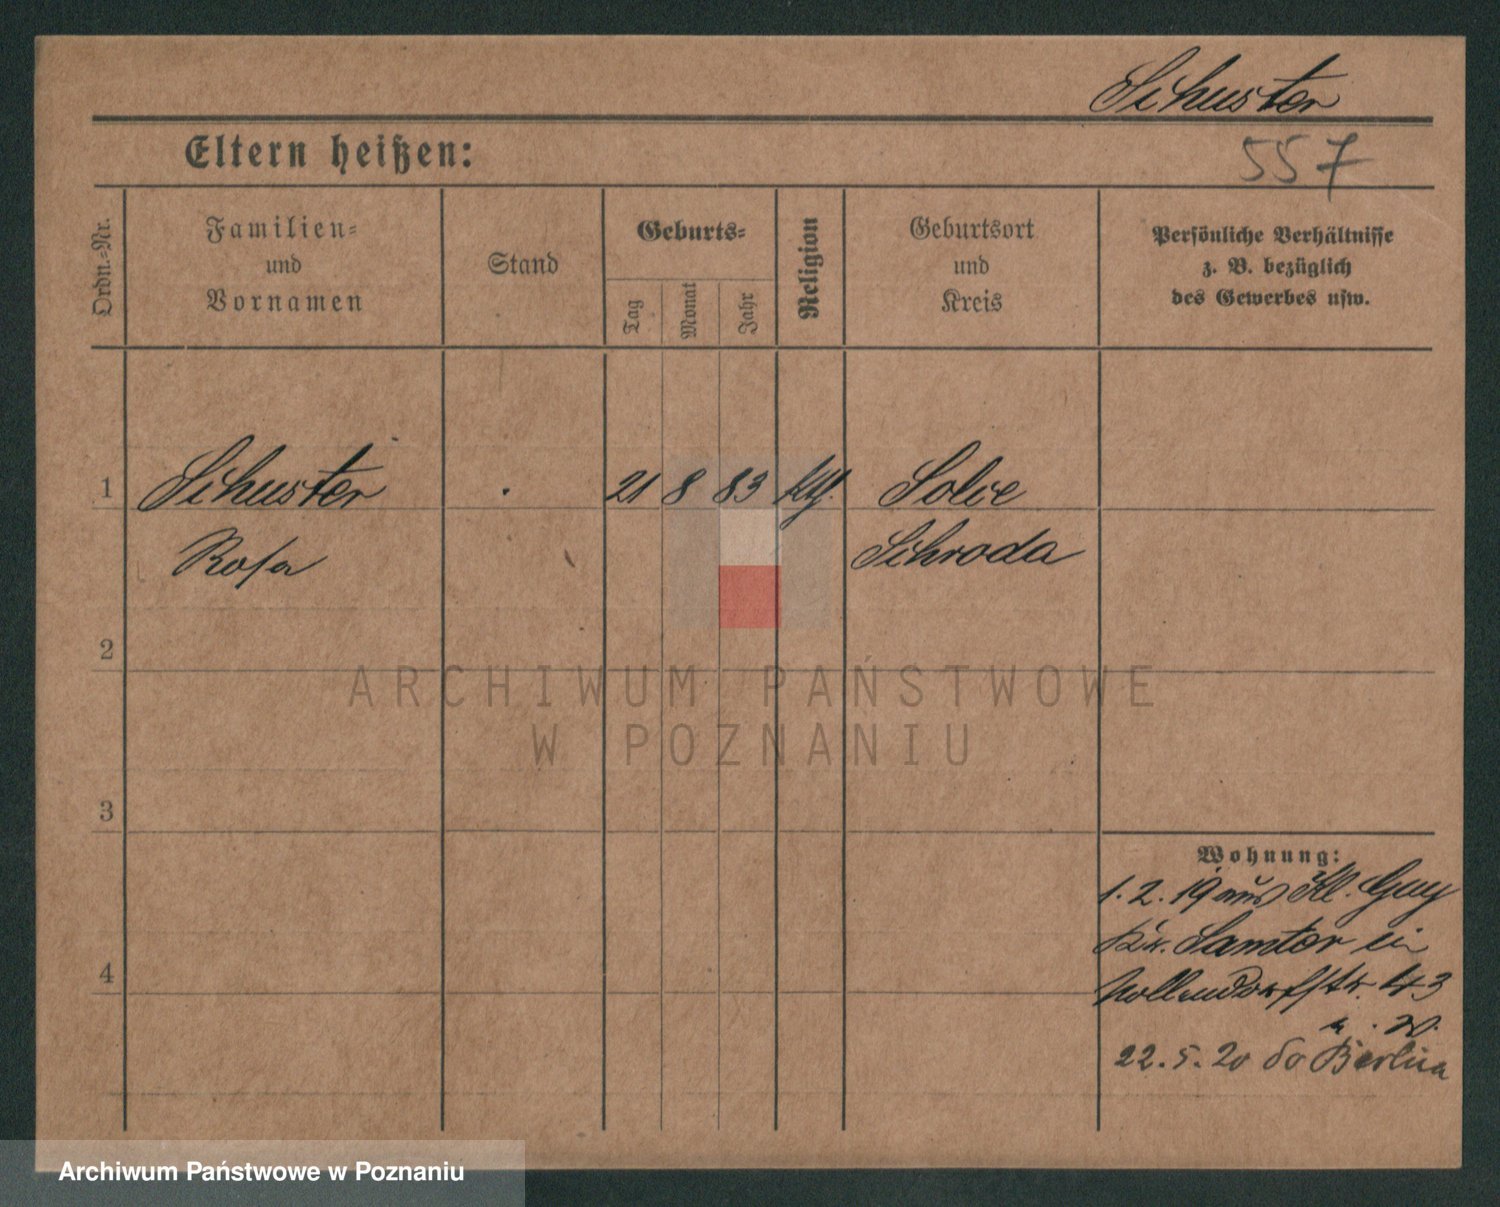 Schuster
Eltern heißen:
557
Ordn.-Nr.
Familien-
und
Vornamen
Stand
Geburts-
Tag
Monat
Jahr
Religion
Geburtsort
und
Kreis
Persönliche Verhältnisse
z. B. bezüglich
des Gewerbes usw.
1
Schuster
21 8 83
Rosa
Schroda
2
ARCHIWUM PAŃSTWOWE
W POZNANIU
3
Wohnung:
1.2.19 aus Kl. Guy
Kr. Samter
Nollendorfstr. 43
22.5.20 Berlin
4
Archiwum Państwowe w Poznaniu